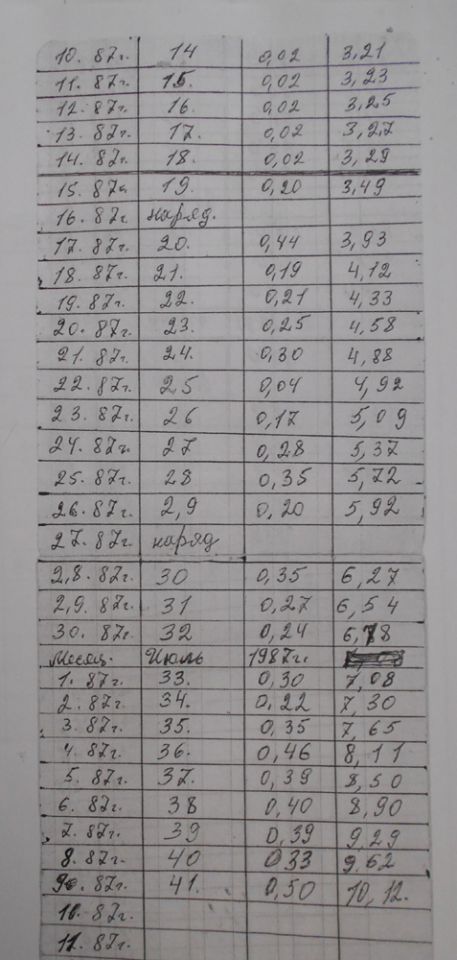 10. 87г. 14 0,02 3,21
11. 87г. 15. 0,02 3,23
12. 87г. 16. 0,02 3,25
13. 87г. 17. 0,02 3,27
14. 87г. 18. 0,02 3,29
15. 87г. 19. 0,20 3,49
16. 87г. наряд.
17. 87г. 20. 0,44 3,93
18. 87г. 21. 0,19 4,12
19. 87г. 22. 0,21 4,33
20. 87г. 23. 0,25 4,58
21. 87г. 24. 0,30 4,88
22. 87г. 25 0,04 4,92
23. 87г. 26 0,17 5,09
24. 87г. 27 0,28 5,37
25. 87г. 28 0,35 5,72
26. 87г. 2,9 0,20 5,92
27. 87г. наряд
2,8. 87г. 30 0,35 6,27
2,9. 87г. 31 0,27 6,54
30. 87г. 32 0,24 6,78
Месяц. Июль 1987г.
1. 87г. 33. 0,30 7,08
2. 87г. 34. 0,22 7,30
3. 87г. 35. 0,35 7,65
4. 87г. 36. 0,46 8,11
5. 87г. 37. 0,39 8,50
6. 87г. 38 0,40 8,90
7. 87г. 39 0,39 9,29
8. 87г. 40 0,33 9,62
9. 87г. 41. 0,50 10,12.
10. 87г.
11. 87г.